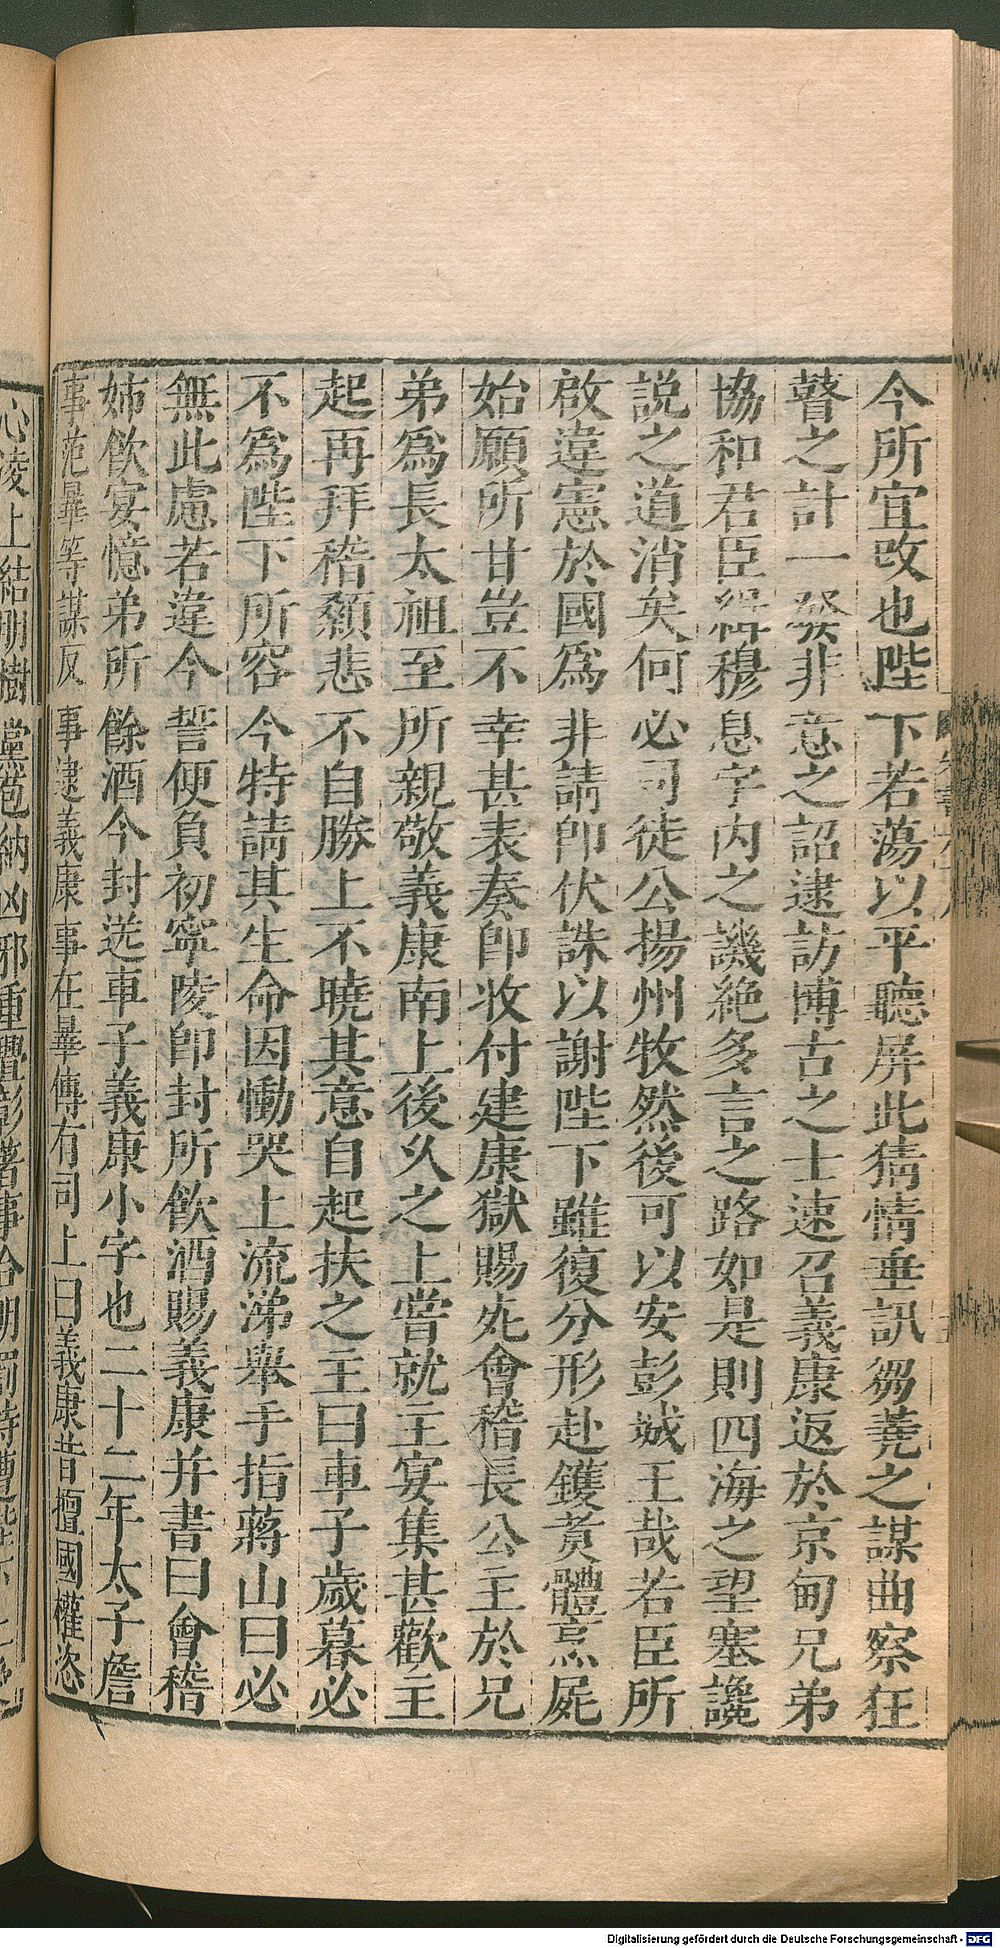 今所宜改也陛下若蕩以平聽屏此猜情垂訊芻蕘之謀曲察狂
瞽之計一發非意之詔逮訪博古之士速召義康返於京甸兄弟
協和君臣緝穆息宇内之譏絶多言之路如是則四海之望塞讒
説之道消矣何必司徒公揚州牧然後可以安彭城王哉若臣所
啟違憲於國爲非請即伏誅以謝陛下雖復分形赴鑊煑體烹屍
始願所甘豈不幸甚表奏即收付建康獄賜死會稽長公主於兄
弟爲長太祖至所親敬義康南上後久之上嘗就主宴集甚歡主
起再拜稽顙悲不自勝上不曉其意自起扶之主曰車子歲暮必
不爲陛下所容今特請其生命因慟哭上流涕舉手指蔣山曰必
無此慮若違今誓便負初寧陵即封所飲酒賜義康并書曰會稽
姊飲宴憶弟所餘酒今封送車子義康小字也二十二年太子詹
事范曄等謀反事逮義康事在曄傳有司上曰義康昔擅國權恣
心凌上結朋樹黨苞納凶邪重釁彰著事合明罰特遭
Digitalisierung gefördert durch die Deutsche Forschungsgemeinschaft - DFG